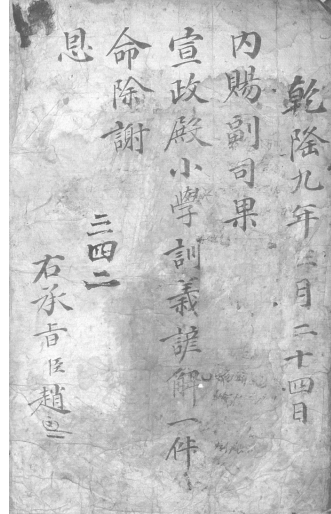 乾隆九年三月二十四日
內賜副司果
宣政殿小學訓義諺解一件
命除謝
恩
三四二
右承旨臣趙